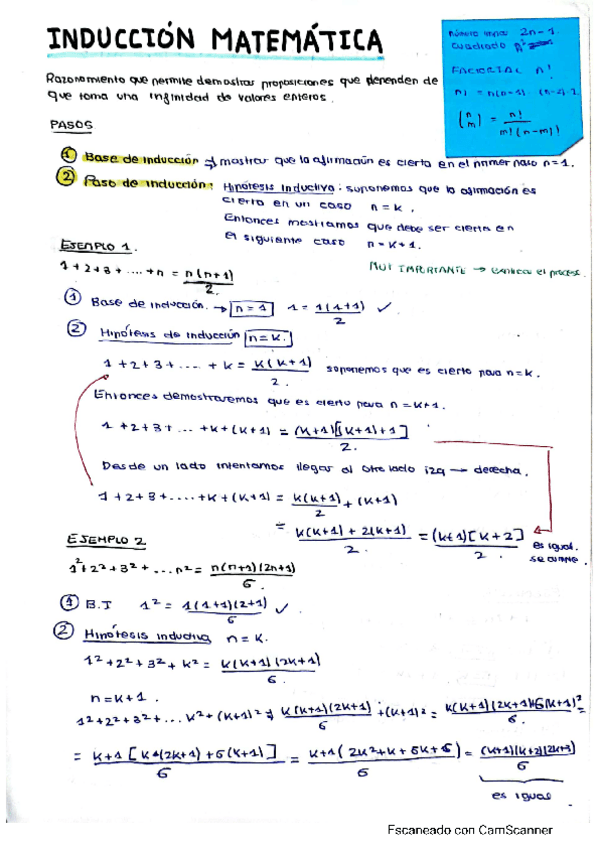 INDUCCIÓN MATEMÁTICA
número impar 2n-1.
cuadrado n²
FACTORIAL n!
n! = n(n-1)·(n-2)·2
(n m) = n! / m!(n-m)
Razonamiento que permite demostrar proposiciones que dependen de
que toma una infinidad de valores enteros.
PASOS
① Base de inducción → mostrar que la afirmación es cierta en el primer paso n=1.
② Paso de inducción: Hipótesis Inductiva: suponemos que la afirmación es
cierta en un caso n=k.
Entonces mostramos que debe ser cierta en
el siguiente caso n=k+1.
MUY IMPORTANTE → explicar el proceso.
EJEMPLO 1.
1+2+3+....+n = n(n+1) / 2.
① Base de inducción. → n=1 1 = 1(1+1) / 2 ✓
② Hipótesis de inducción n=k.
1+2+3+.... + k = k(k+1) / 2. suponemos que es cierto para n=k.
Entonces demostraremos que es cierto para n=k+1.
1+2+3+... +k+(k+1) = (k+1)[(k+1)+1] / 2.
Desde un lado intentamos llegar al otro lado izq → derecha.
1+2+3+....+k+(k+1) = k(k+1) / 2 + (k+1)
= k(k+1) + 2(k+1) / 2. = (k+1)[k+2] / 2. es igual.
se cumple
EJEMPLO 2
1²+2²+3²+...n² = n(n+1)(2n+1) / 6.
① B.I 1² = 1(1+1)(2+1) / 6 ✓
② Hipótesis inductiva n=k.
1²+2²+3²+k² = k(k+1)(2k+1) / 6.
n=k+1.
1²+2²+3²+...k²+(k+1)² = k(k+1)(2k+1) / 6 +(k+1)² = k(k+1)(2k+1)+6(k+1)² / 6. =
= k+1[k*(2k+1)+6(k+1)] / 6 = k+1(2k²+k+6k+6) / 6 = (k+1)(k+2)(2k+3) / 6
es igual
Escaneado con CamScanner